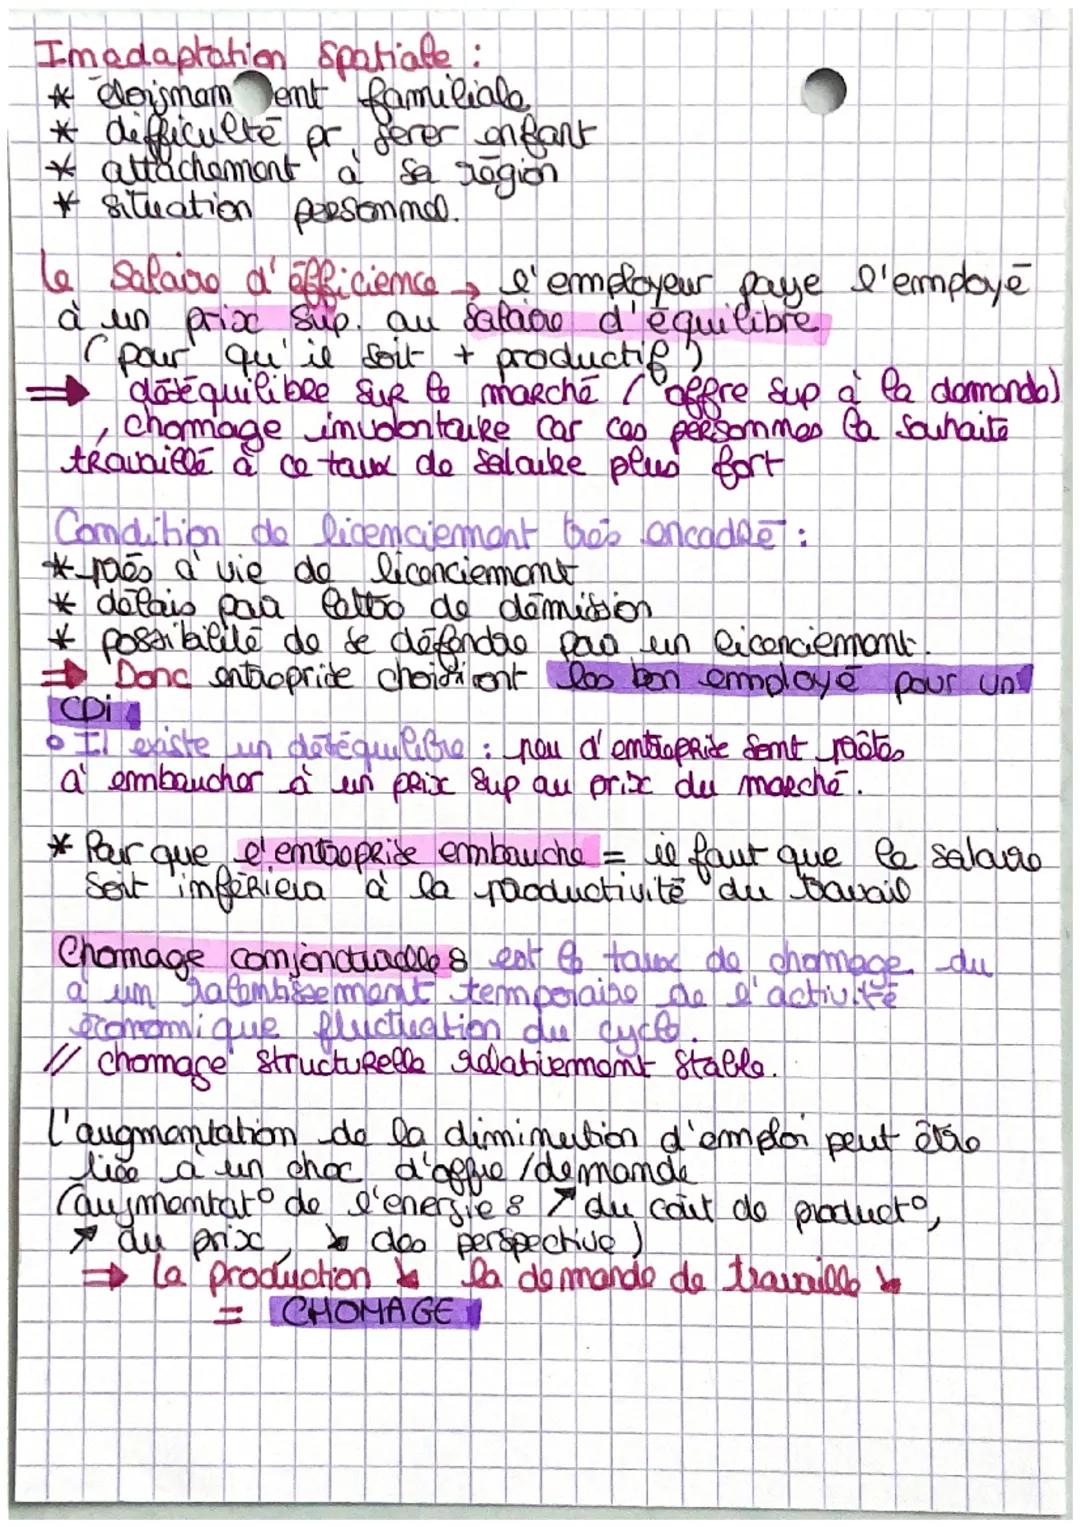 Inadaptation spatiale :
* éloignement familiale
* difficulté pr gerer enfant
* attachement à sa région
* situation personnel.
le salaire d'éfficience → l'employeur paye l'employé
à un prix sup. au salaire d'équilibre
(pour qu'il soit + productif)
⇒ déséquilibre sur le marché (offre sup à la demande)
, chomage involontaire car ces personnes la souhaite
travaillé à ce taux de salaire plus fort
Condition de licenciement très encadré :
* préavie de licenciement
* délais par lettre de démission
* possibilité de se défendre par un licenciement.
⇒ Donc entreprise choisiront les bon employé pour un
CDI
• Il existe un déséquilibre : peu d'entreprise sont prêtes
à embaucher à un prix sup au prix du marché.
* Pour que l'entreprise embauche = il faut que le salaire
soit inférieur à la productivité du travail
Chomage conjoncturelle : est le taux de chomage du
à un ralentissement temporaire de l'activité
économique fluctuation du cycle.
// chomage structurelle relativement stable.
L'augmentation de la diminution d'emploi peut être
liée à un choc d'offre / demande
(augmentat° de l'energie : ↗ du coût de product°,
↗ du prix, ↘ des perspective)
⇒ la production ↘ la demande de travaille ↘
= CHOMAGE